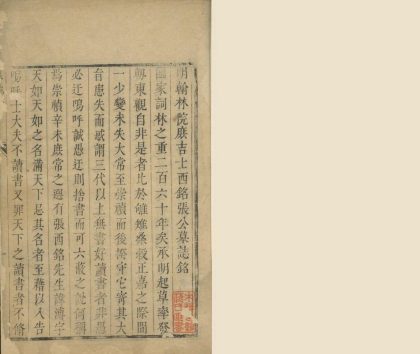 明翰林院庶吉士西銘張公墓誌銘
國家詞林之重二百六十年矣承明起草率發
東觀自非是者比於雕蟲蔑正嘉之際間
一少變未失大常至崇禎而後海宇它寄其大
旨患失而感謂三代以上無書好讀書者非愚
必迂嗚呼誠愚迂則捨書而可六藝之說何獨
為崇禎辛未庶常之選有張西銘先生諱溥字
天如天如之名滿天下忌其名者至藉以入告
嗚呼士大夫不讀書又罪天下之讀書者不脩